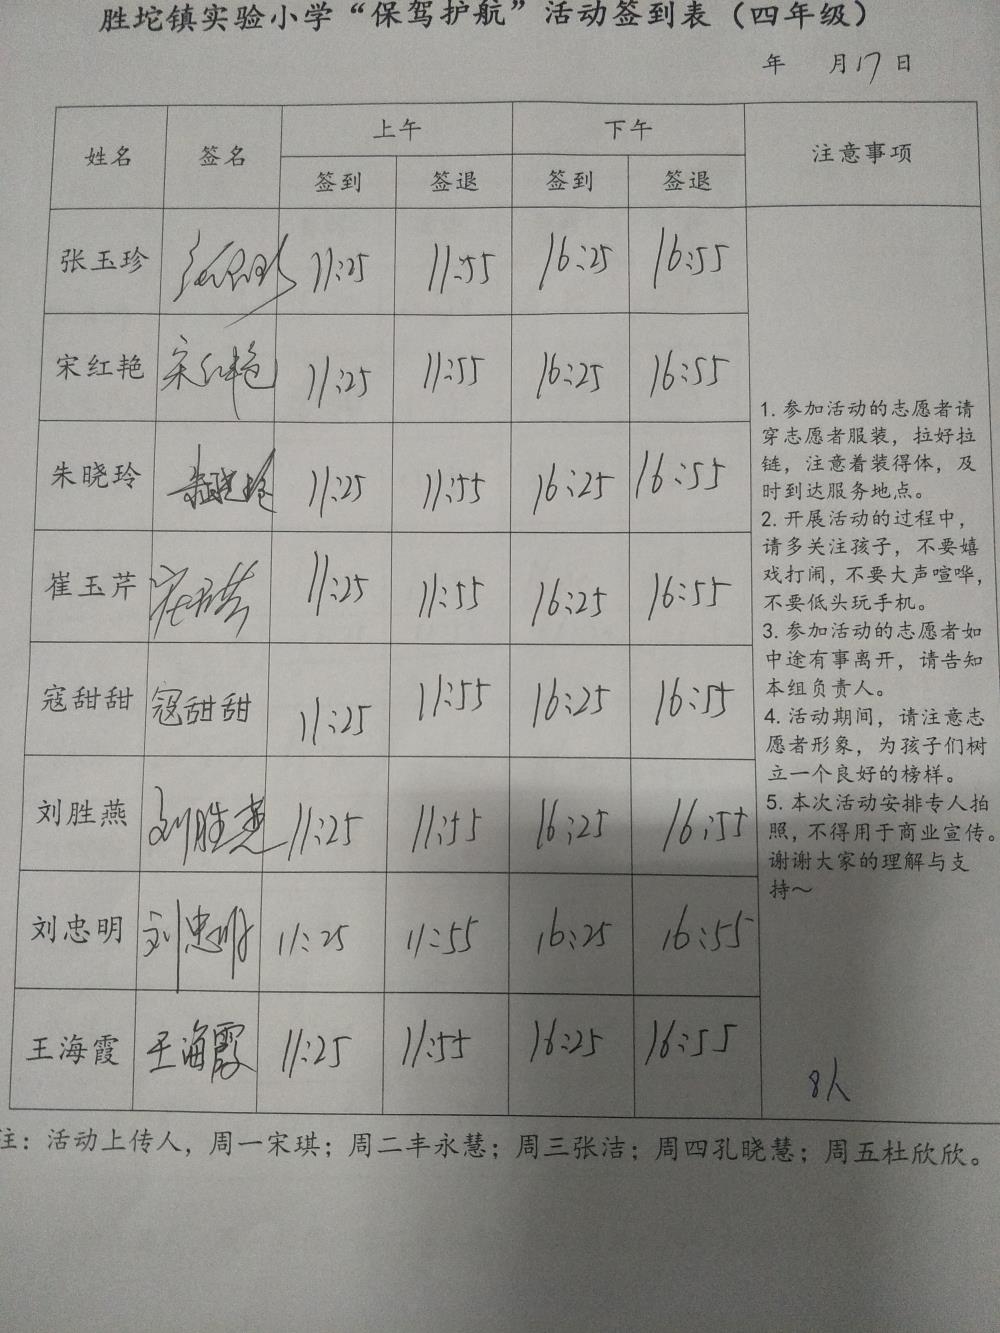 胜坨镇实验小学“保驾护航”活动签到表（四年级）
年 月17日
姓名 签名 上午 下午 注意事项
签到 签退 签到 签退
张玉珍 张玉珍 11:25 11:55 16:25 16:55
宋红艳 宋红艳 11:25 11:55 16:25 16:55
朱晓玲 朱晓玲 11:25 11:55 16:25 16:55
崔玉芹 崔玉芹 11:25 11:55 16:25 16:55
寇甜甜 寇甜甜 11:25 11:55 16:25 16:55
刘胜燕 刘胜燕 11:25 11:55 16:25 16:55
刘忠明 刘忠明 11:25 11:55 16:25 16:55
王海霞 王海霞 11:25 11:55 16:25 16:55
1. 参加活动的志愿者请
穿志愿者服装，拉好拉
链，注意着装得体，及
时到达服务地点。
2. 开展活动的过程中，
请多关注孩子，不要嬉
戏打闹，不要大声喧哗，
不要低头玩手机。
3. 参加活动的志愿者如
中途有事离开，请告知
本组负责人。
4. 活动期间，请注意志
愿者形象，为孩子们树
立一个良好的榜样。
5. 本次活动安排专人拍
照，不得用于商业宣传。
谢谢大家的理解与支
持～
8人
注：活动上传人，周一宋琪；周二丰永慧；周三张洁；周四孔晓慧；周五杜欣欣。